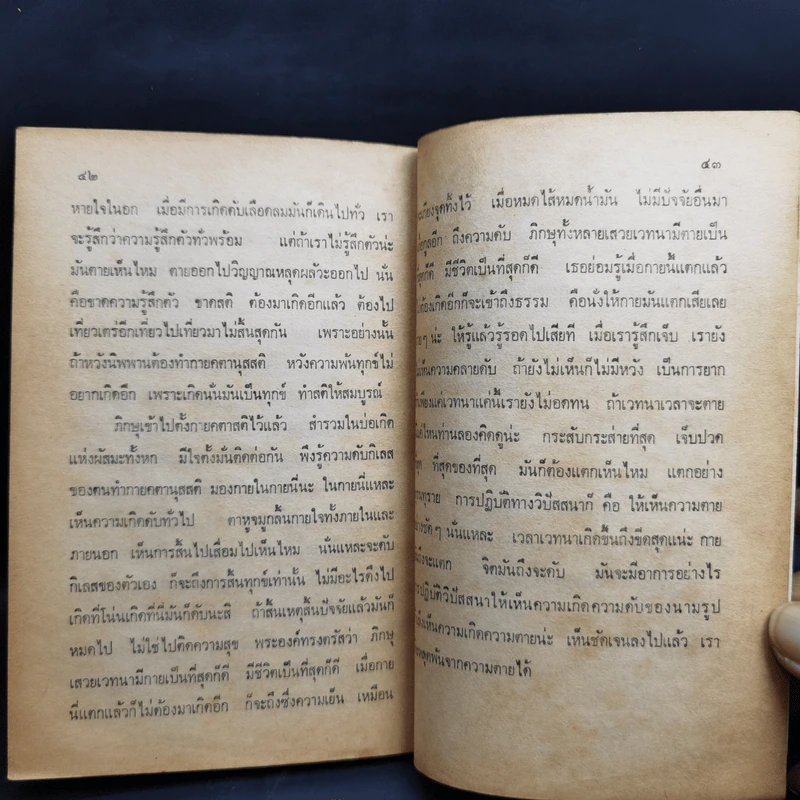 ๔๒
หายใจในอก เมื่อมีการเกิดดับเลือดลมมันก็เดินไปทั่ว เรา
จะรู้สึกว่าความรู้สึกตัวทั่วพร้อม แต่ถ้าเราไม่รู้สึกตัวน่ะ
มันตายเห็นไหม ตายออกไปวิญญาณหลุดผลัวะออกไป นั่น
คือขาดความรู้สึกตัว ขาดสติ ต้องมาเกิดอีกแล้ว ต้องไป
เที่ยวเตร่อีกเที่ยวไปเที่ยวมาไม่สิ้นสุดกัน เพราะอย่างนั้น
ถ้าหวังนิพพานต้องทำกายคตานุสสติ หวังความพ้นทุกข์ไม่
อยากเกิดอีก เพราะเกิดนั่นมันเป็นทุกข์ ทำสติให้สมบูรณ์
ภิกษุเข้าไปตั้งกายคตาสติไว้แล้ว สำรวมในบ่อเกิด
แห่งผัสมะทั้งหก มีใจตั้งมั่นติดต่อกัน พึงรู้ความดับกิเลส
ของตนทำกายคตานุสสติ มองภายในกายนี่นะ ในกายนี่แหละ
เห็นความเกิดดับทั่วไป ตาหูจมูกลิ้นกายใจทั้งภายในและ
ภายนอก เห็นการสิ้นไปเสื่อมไปเห็นไหม นั่นแหละจะดับ
กิเลสของตัวเอง ก็จะถึงการสิ้นทุกข์เท่านั้น ไม่มีอะไรดึงไป
เกิดที่โน่นเกิดที่นี่มันก็ดับนะสิ ถ้าสิ้นเหตุสิ้นปัจจัยแล้วมันก็
หมดไป ไม่ใช่ไปติดความสุข พระองค์ทรงตรัสว่า ภิกษุ
เสวยเวทนามีกายเป็นที่สุดก็ดี มีชีวิตเป็นที่สุดก็ดี เมื่อกาย
นี่แตกแล้วก็ไม่ต้องมาเกิดอีก ก็จะถึงซึ่งความเย็น เหมือน
๔๓
จุดทิ้งไว้ เมื่อหมดไส้หมดน้ำมัน ไม่มีปัจจัยอื่นมา
อีก ถึงความดับ ภิกษุทั้งหลายเสวยเวทนามีตายเป็น
ที่สุดก็ดี มีชีวิตเป็นที่สุดก็ดี เธอย่อมรู้เมื่อกายนี้แตกแล้ว
ต้องเกิดอีกก็จะเข้าถึงธรรม คือนั่งให้กายมันแตกเสียเลย
ๆ น่ะ ให้รู้แล้วรู้รอดไปเสียที เมื่อเรารู้สึกเจ็บ เรายัง
เห็นความคลายดับ ถ้ายังไม่เห็นก็ไม่มีหวัง เป็นการยาก
เพียงแค่เวทนาแค่นี้เรายังไม่อดทน ถ้าเวทนาเวลาจะตาย
ไหนท่านลองคิดดูน่ะ กระสับกระส่ายที่สุด เจ็บปวด
ที่สุดของที่สุด มันก็ต้องแตกเห็นไหม แตกอย่าง
ทุราย การปฏิบัติทางวิปัสสนาก็ คือ ให้เห็นความตาย
ชัดๆ นั่นแหละ เวลาเวทนาเกิดขึ้นถึงขีดสุดแน่ะ กาย
ถึงจะแตก จิตมันถึงจะดับ มันจะมีอาการอย่างไร
ปฏิบัติวิปัสสนาให้เห็นความเกิดความดับของนามรูป
เห็นความเกิดความตายน่ะ เห็นชัดเจนลงไปแล้ว เรา
หลุดพ้นจากความตายได้